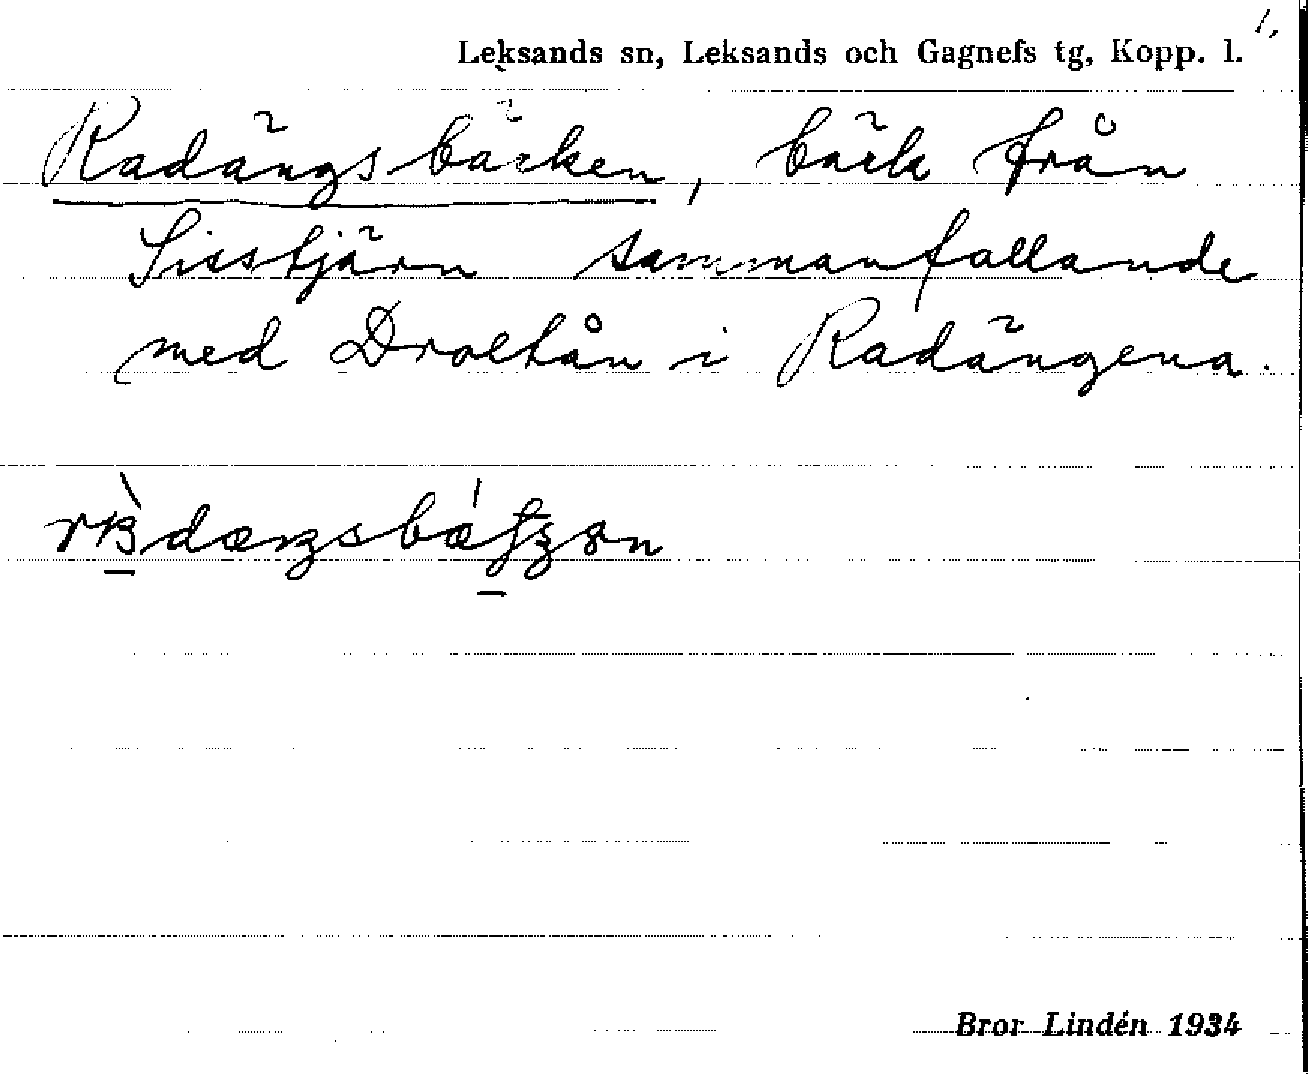 1,
Leksands sn, Leksands och Gagnefs tg, Kopp. l.
Radängsbäcken, bäck från
Sisstjärn sammanfallande
med Droltån i Radängena.
Bror Lindén 1934